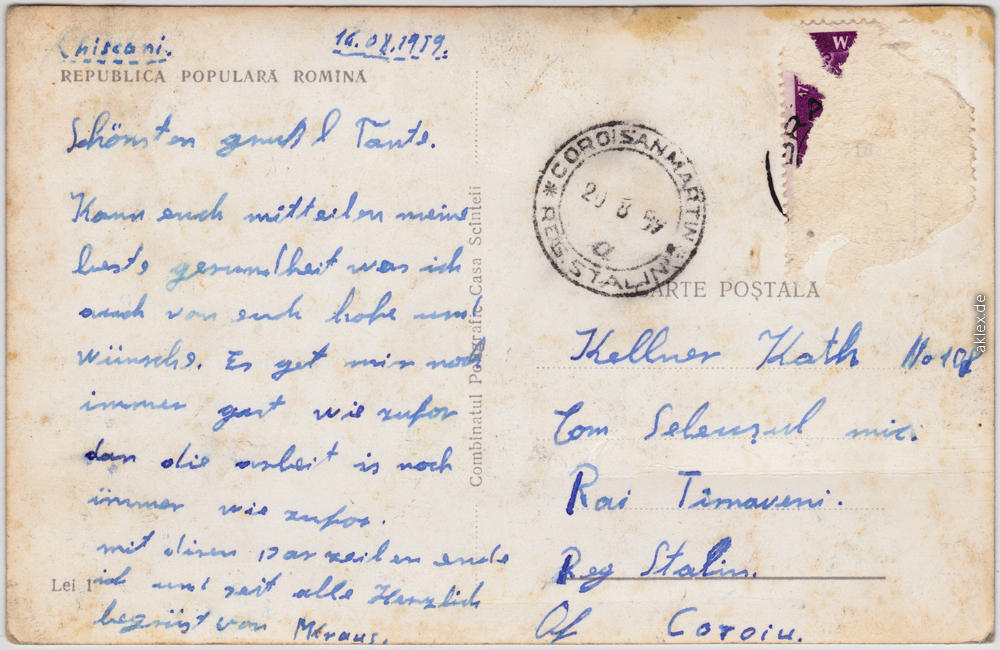 Chiscani.
16.08.1959.
REPUBLICA POPULARĂ ROMÎNĂ
Schönsten gruß l Tante.
Kann euch mitteilen meine
beste gesundheit was ich
auch von euch hofe und
wünsche. Es get mir noch
immer gut wie zufor
dan die arbeit is noch
immer wie zufor.
mit disen par zeilen ende
ich und seit alle Herzlich
begrüst von MKraus.
Lei 1
Combinatul Poligrafic Casa Scînteii
COROISANMARTIN
REG. STALIN
20 8 59
a
CARTE POȘTALĂ
Kellner Kath No
Com Seleușul mic.
Rai Tîrnaveni.
Reg Stalin.
Of Coroiu.
aklex.de